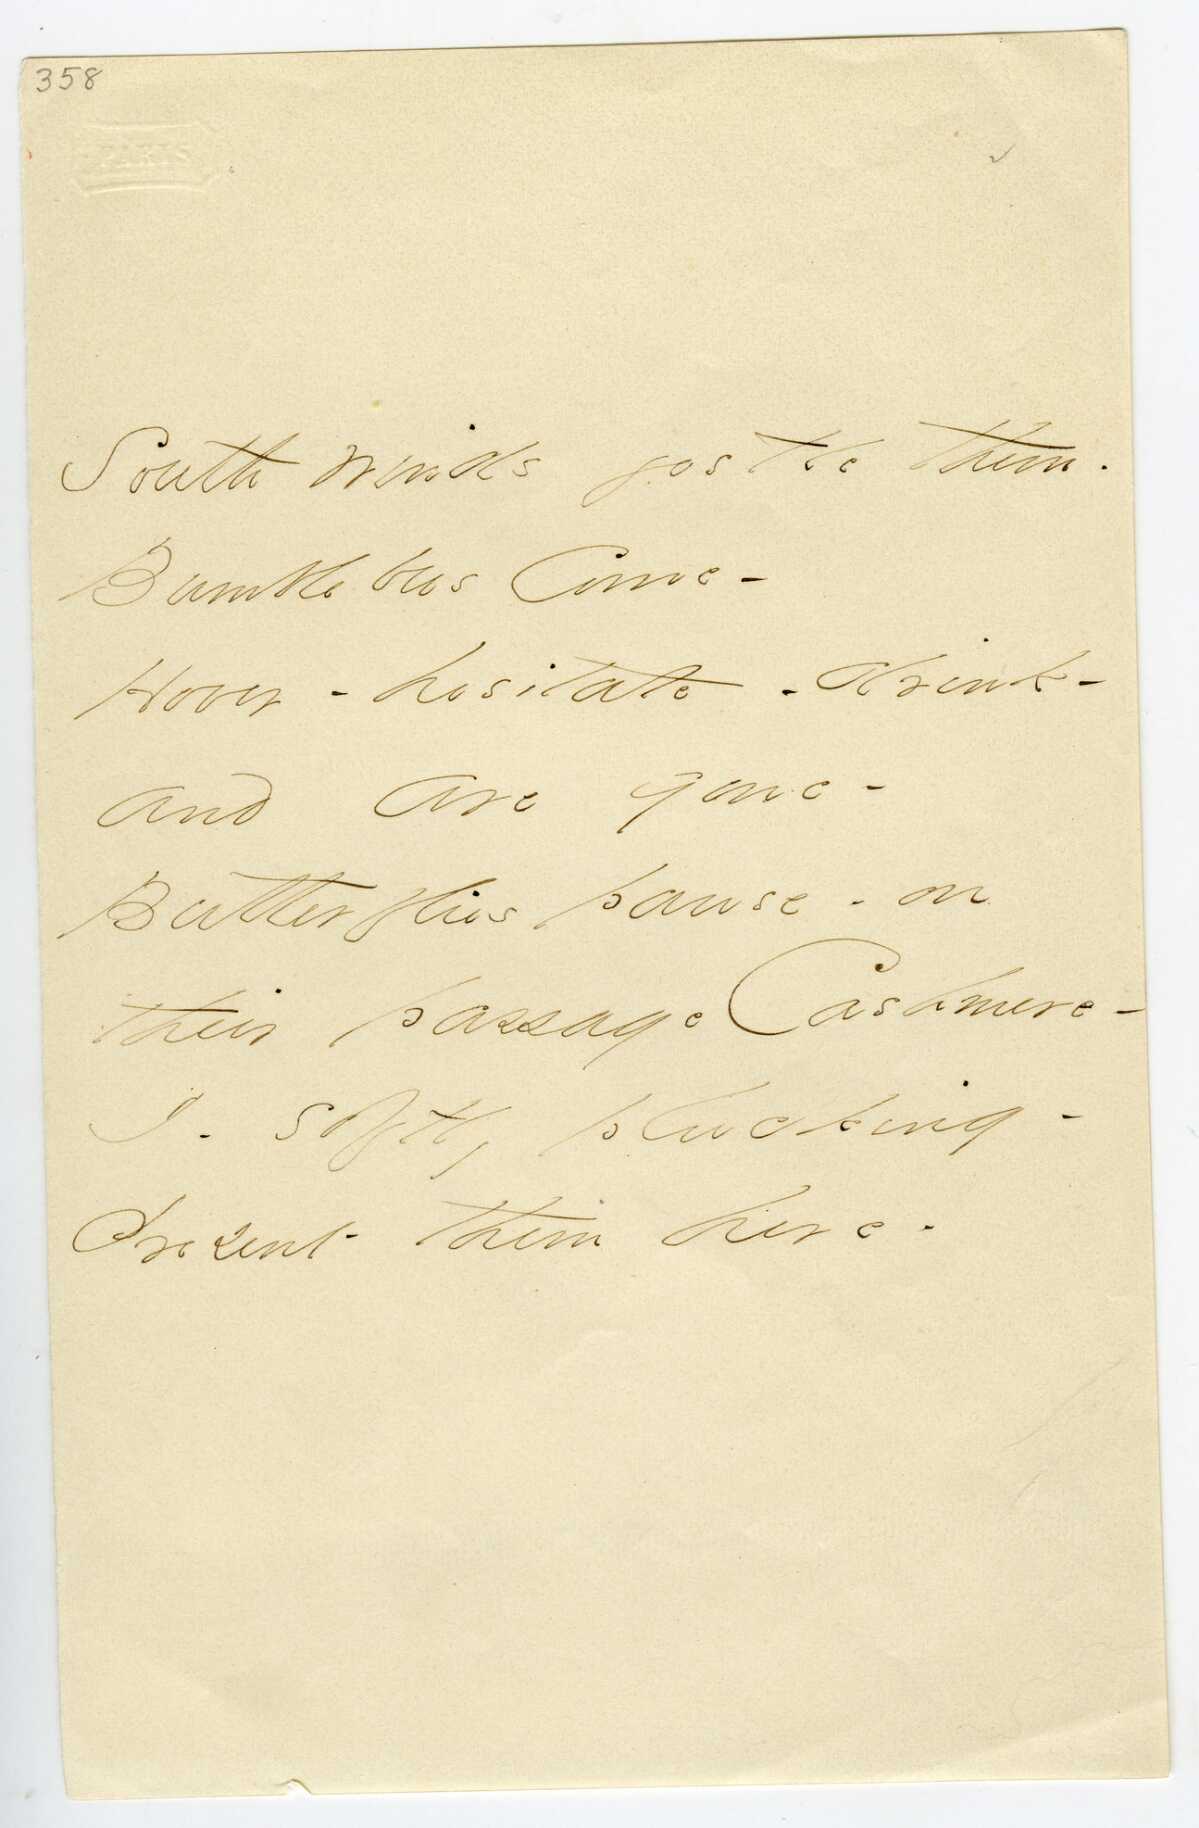 358
PARIS
South winds jostle them.
Bumblebees Come -
Hover - hesitate - drink -
and are gone -
Butterflies pause - on
their passage Cashmere -
I - softly plucking -
Present them here -